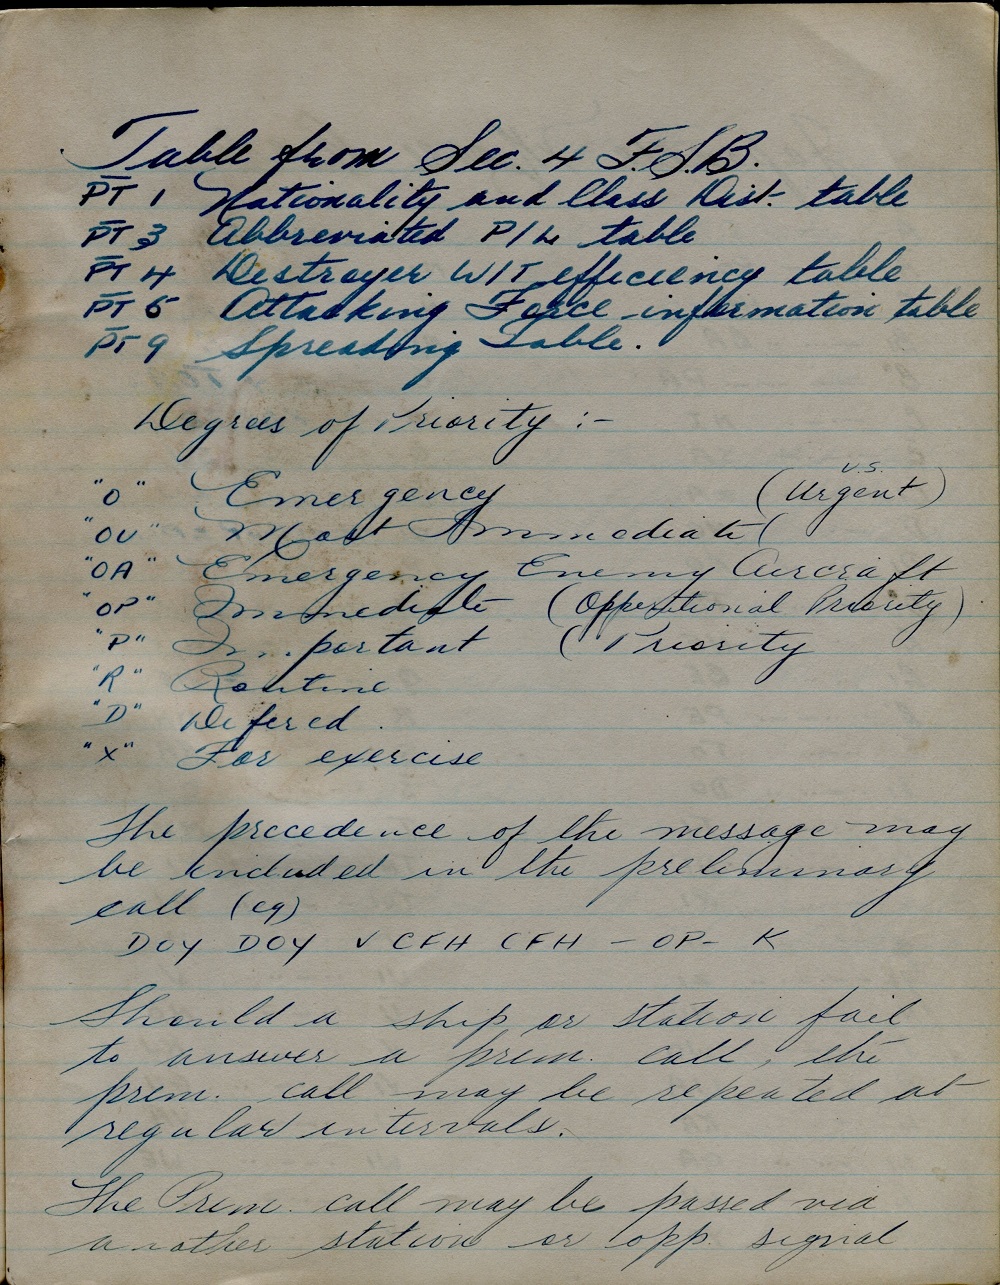 Table from Sec. 4 F.S.B.
PT 1 Nationality and Class Dist. table
PT 3 Abbreviated P/L table
PT 4 Destroyer W/T efficiency table
PT 6 Attacking Force information table
PT 9 Spreading Table.
Degrees of Priority :-
U.S.
"O" Emergency (Urgent)
"OU" Most Immediate (
"OA" Emergency Enemy Aircraft
"OP" Immediate (Oppertional Priority)
"P" Important (Priority
"R" Routine
"D" Defered.
"X" For exercise
The precedence of the message may
be included in the preliminary
call (eg)
DOY DOY V CFH CFH - OP - K
Should a ship or station fail
to answer a prem. call, the
prem. call may be repeated at
regular intervals.
The Prem. call may be passed via
another station or opp. signal